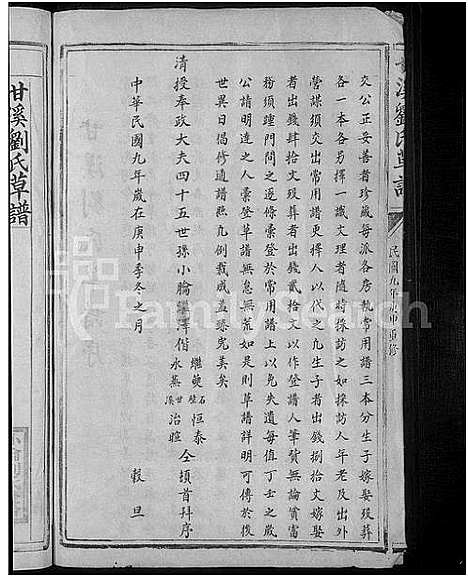 甘溪劉氏草譜
民國九年庚申重修
交公正妥善者珍藏每派各房執常用譜三本分生子嫁娶歿葬
各一本各房擇一識文理者隨時採訪之如採訪人年老及出外
營謀須交出常用譜更擇人以代之凡生子者出錢捌拾文嫁娶
者出錢肆拾文歿葬者出錢貳拾文以作登譜人筆貲無論貧富
務須踵門問之逐條彙登於常用譜上以免失遺每值丁壬之歲
公請明達之人彙登草譜無怠無荒如是則草譜詳明可傳於後
世異日倡修道譜照凡例載成盖臻完美矣
清授奉政大夫四十五世孫小腀
偕
繼夔
石
恒泰
永蕪
甘溪
治暄
仝頓首拜序
中華民國九年歲在庚申季冬之月
穀旦
甘溪劉氏草譜
FamilySearch